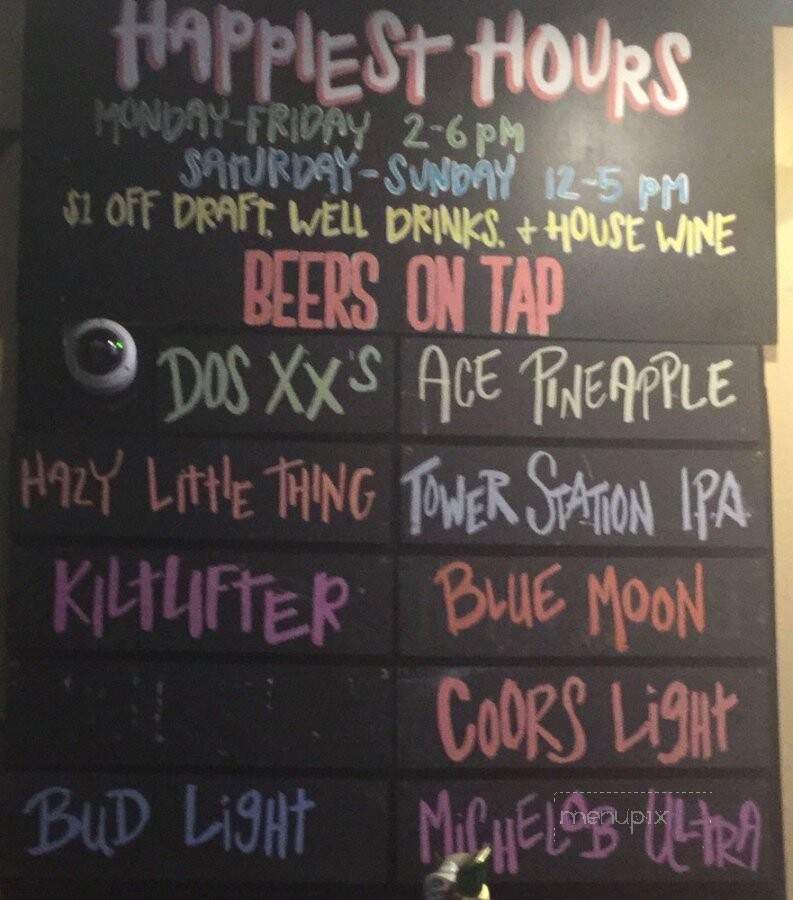 HAPPIEST HOURS
MONDAY-FRIDAY 2-6 PM
SATURDAY-SUNDAY 12-5 PM
$1 OFF DRAFT, WELL DRINKS, + HOUSE WINE
BEERS ON TAP
DOS XX'S
ACE PINEAPPLE
HAZY LITTLE THING
TOWER STATION IPA
KILTLIFTER
BLUE MOON
COORS LIGHT
BUD LIGHT
MICHELOB ULTRA
menupix